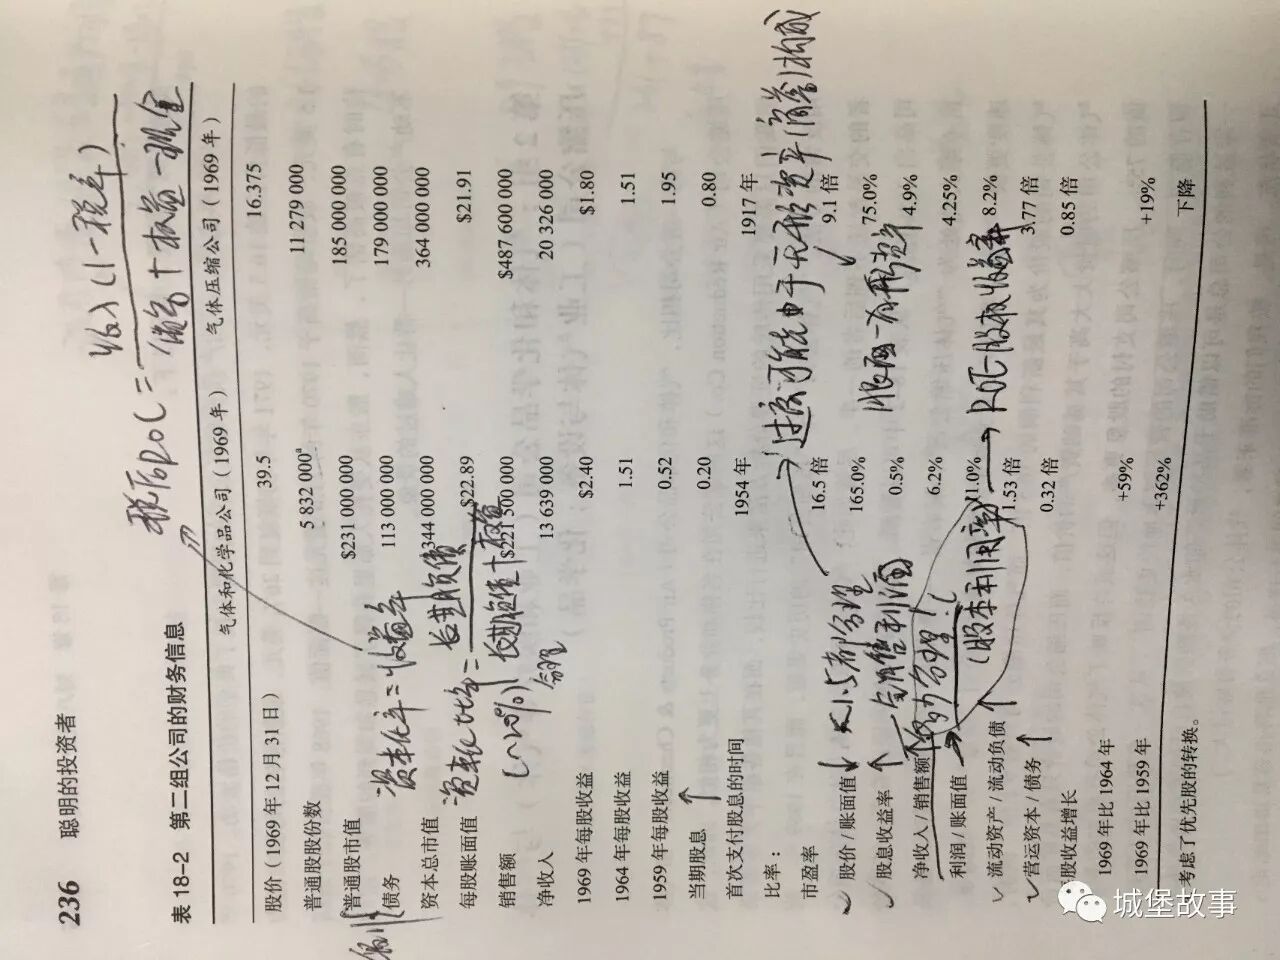 236 聪明的投资者
表 18-2 第二组公司的财务信息
气体和化学品公司（1969 年） 气体压缩公司（1969 年）
股价（1969 年 12 月 31 日） 39.5 16.375
普通股股份数 5 832 000ª 11 279 000
普通股市值 $231 000 000 185 000 000
债务 113 000 000 179 000 000
资本总市值 344 000 000 364 000 000
每股账面值 $22.89 $21.91
销售额 $221 500 000 $487 600 000
净收入 13 639 000 20 326 000
1969 年每股收益 $2.40 $1.80
1964 年每股收益 1.51 1.51
1959 年每股收益 0.52 1.95
当期股息 0.20 0.80
首次支付股息的时间 1954 年 1917 年
比率：
市盈率 16.5 倍 9.1 倍
股价 / 账面值 165.0% 75.0%
股息收益率 0.5% 4.9%
净收入 / 销售额 6.2% 4.25%
利润 / 账面值 11.0% 8.2%
流动资产 / 流动负债 1.53 倍 3.77 倍
营运资本 / 债务 0.32 倍 0.85 倍
每股收益增长
1969 年比 1964 年 +59% +19%
1969 年比 1959 年 +362% 下降
考虑了优先股的转换。
税后ROC = 收入(1-税率)
债务+权益-现金
资本化率=收益率
资本化比率= 长期负债
长期负债+权益
(~20%) 合理
<1.5都合理
过高可能由于无形资产/商誉构成
账面-有形资产
销售利润
多少合理！
(股本利用率) → ROE 股权收益率
城堡故事